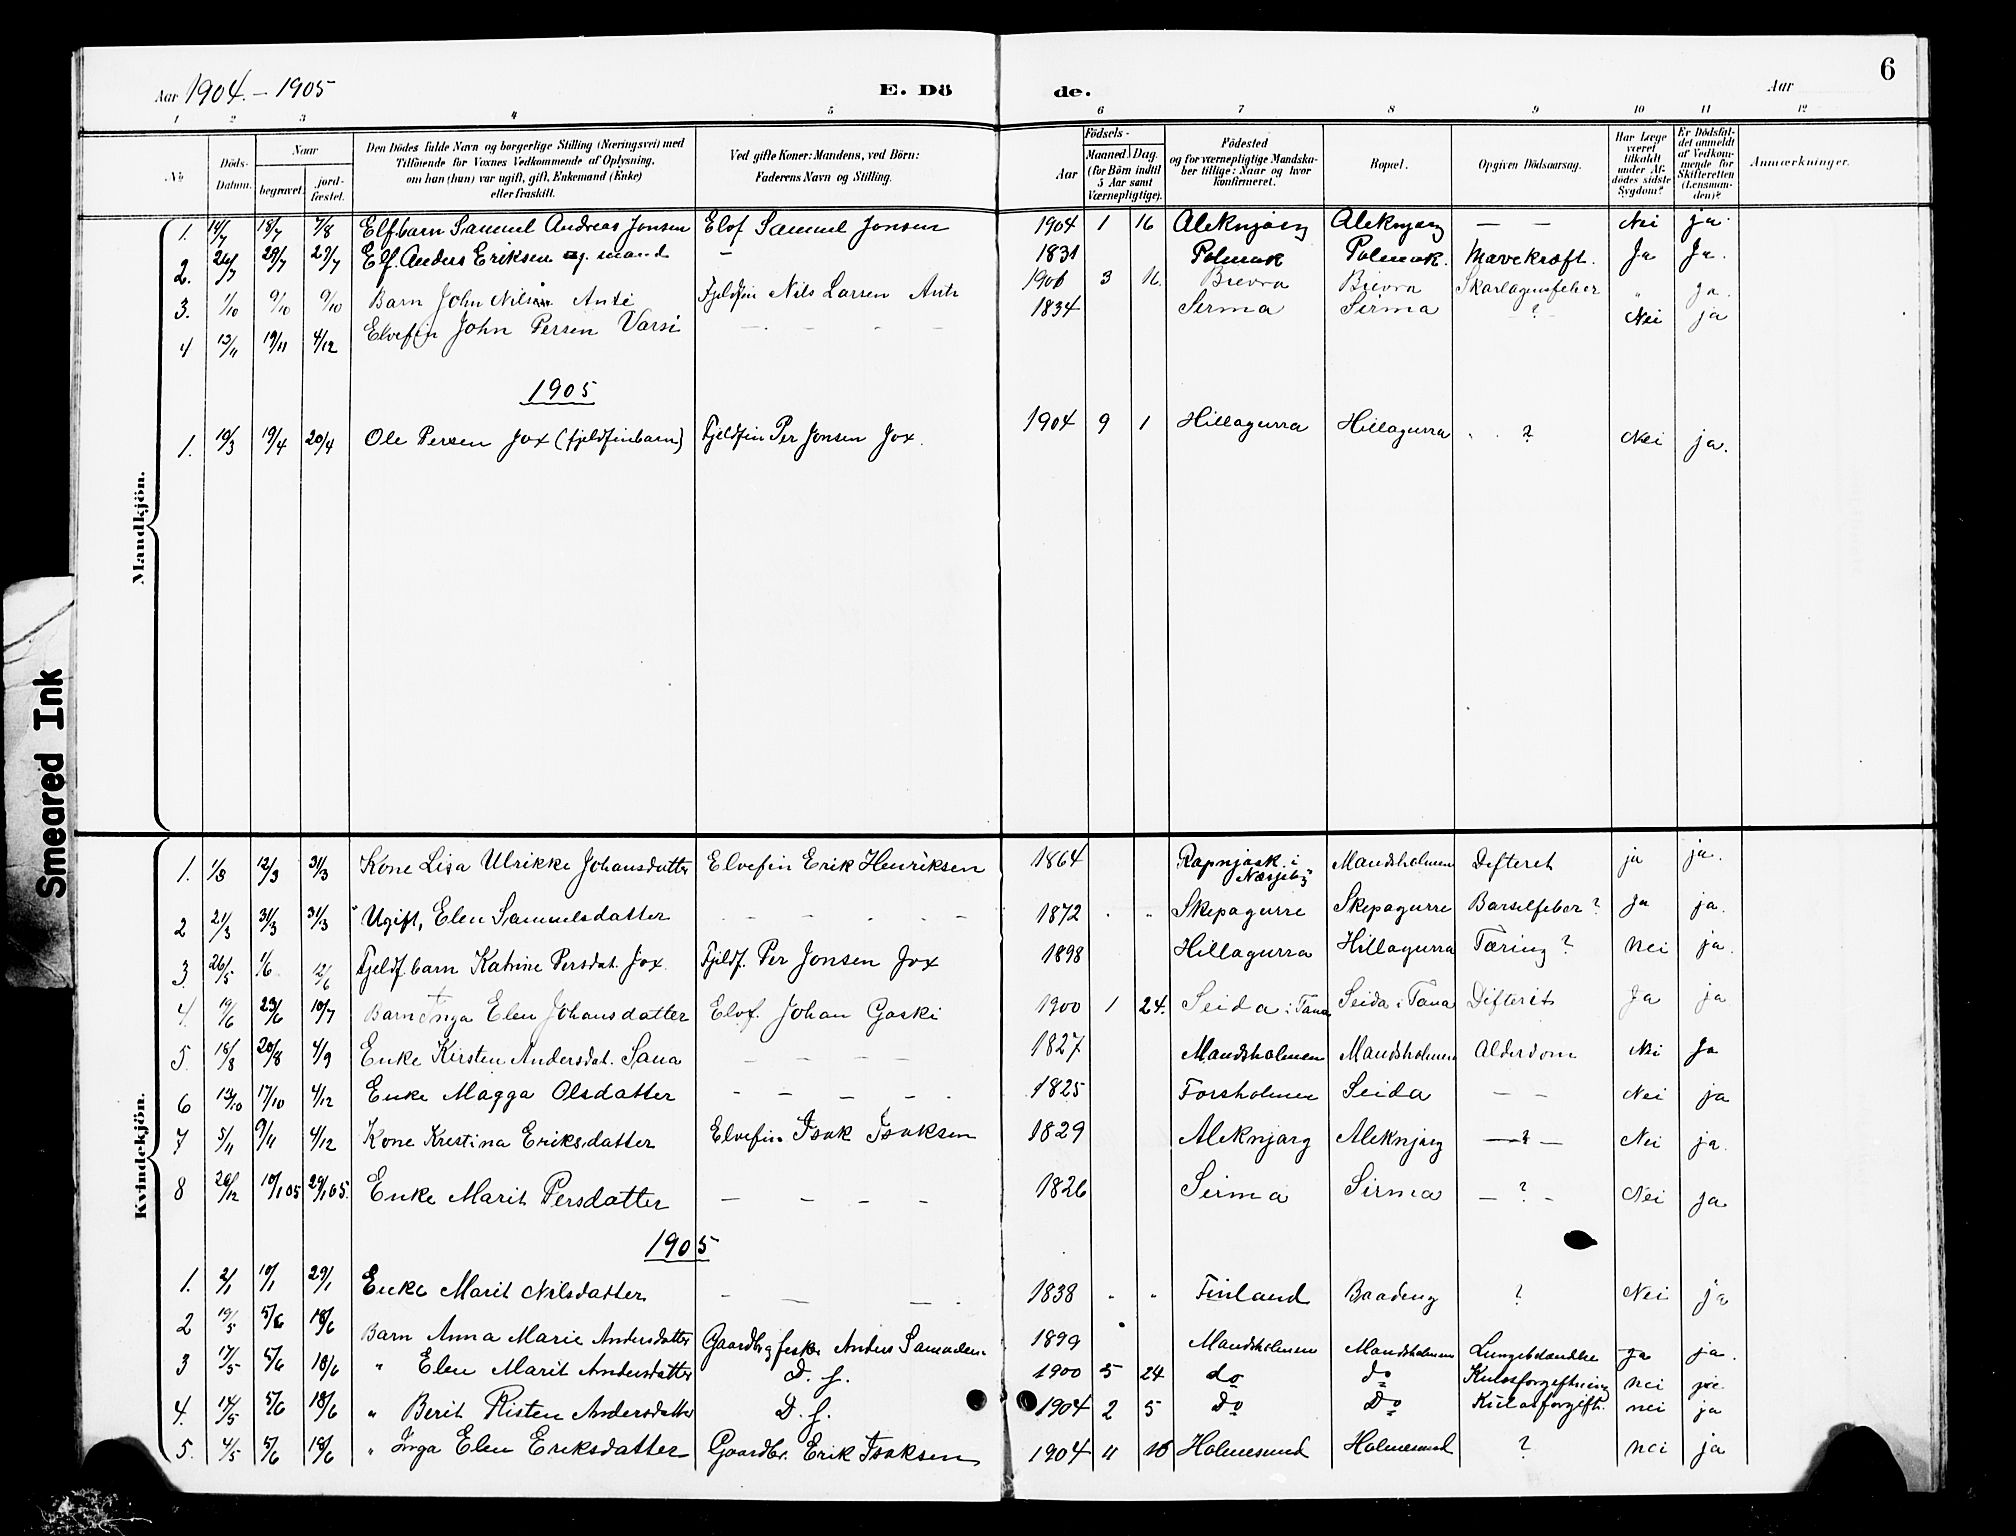 Aar 1904. – 1905 E. Dö de. Aar 6
1 2 3 4 5 6 7 8 9 10 11 12
No Döds-Datum. Naar begravet. jord-fæstet. Den Dödes fulde Navn og borgerlige Stilling (Næringsvei) med Tilföiende for Voxnes Vedkommende af Oplysning, om han (hun) var ugift, gift, Enkemand (Enke) eller fraskilt. Ved gifte Koner: Mandens, ved Börn: Faderens Navn og Stilling. Födsels- Aar Maaned Dag. (for Börn indtil 5 Aar samt Værnepligtige). Födested og for værnepligtige Mandska-ber tillige: Naar og hvor konfirmeret. Bopæl. Opgiven Dödsaarsag. Har Læge været tilkaldt under Af-dödes sidste Sygdom? Er Dödsfal-det anmeldt af Vedkom-mende for Skifteretten (Lensman-den)? Anmærkninger.
Mandkjön.
1. 14/7 18/7 7/8 Elf.barn Samuel Andreas Jonsen Elvf Samuel Jonsen 1904 1 16 Aleknjarg Aleknjarg — — Nei ja.
2. 26/7 29/7 29/7 Elf. Anders Eriksen g. mand – 1831 Polmak Polmak. Mavekræft. Ja Ja.
3. 1/10 9/10 9/10 Barn John Nilsen Anti Fjeldfin Nils Larsen Anti 1901 3 11. Bievra Bievra Skarlagensfeber " ja.
4 13/11 19/11 4/12 Elvefin John Persen Varsi – – – – 1834 Sirma Sirma – ? Nei ja
1905
1. 19/3 19/4 20/4 Ole Persen Jox (fjeldfinbarn) Fjeldfin Per Jonsen Jox. 1904 9 1 Hillagurra Hillagurra ? Nei ja.
Kvindekjön.
1. 1/3 12/3 31/3 Kone Lisa Ulrikke Johansdatter Elvefin Erik Henriksen 1864 Rapnjask i Næsseby Mandsholmen Difterit ja ja.
2 21/3 31/3 31/3 Ugift, Elen Samuelsdatter – – – – 1872 " " Skepagurre Skepagurre Barselfeber? Ja ja.
3. 26/5 1/6 12/6 Fjeldf.barn Katrine Persdat. Jox. Fjeldf. Per Jonsen Jox 1898 Hillagurra Hillagurra Tæring? nei ja.
4. 19/6 23/6 10/7 Barn Inga Elen Johansdatter Elvf. Johan Gaski 1900 1 24. Seida i Tana Seida i Tana Difterit Ja ja
5. 18/8 20/8 4/9 Enke Kirsten Andersdat. Sana – – – – 1827 Mandsholmen Mandsholmen Alderdom Nei Ja
6 13/10 17/10 4/12 Enke Magga Olsdatter – – – – 1825 Forsholmen Seida – – Nei ja
7 5/11 9/11 4/12 Kone Kristina Eriksdatter Elvefin Isak Isaksen 1829 Aleknjarg Aleknjarg —?— Nei ja.
8 26/12 10/1 05 29/1 05. Enke Marit Persdatter – – – – 1826 Sirma Sirma – ? – Nei ja
1905
1. 2/1 10/1 29/1 Enke Marit Nilsdatter – – – 1838 " " Finland Baadeng ? Nei ja
2 19/5 5/6 18/6 Barn Anna Marie Andersdatter Gaardbr. g fisker Anders Samuelsen 1899 Mandsholmen Mandsholmen Lungebetændelse Ja ja.
3 17/5 5/6 18/6 " Elen Marit Andersdatter D. s. 1900 5 24 do do Kulosforgiftning nei ja.
4. 14/5 5/6 18/6 " Berit Risten Andersdatter D. s. 1904 2 5 Do Do Kulosforgiftn. nei ja
5. 4/5 5/6 18/6 " Inga Elen Eriksdatter Gaardbr. Erik Isaksen 1904 11 16 Holmesund Holmesund ? nei ja
Smeared Ink